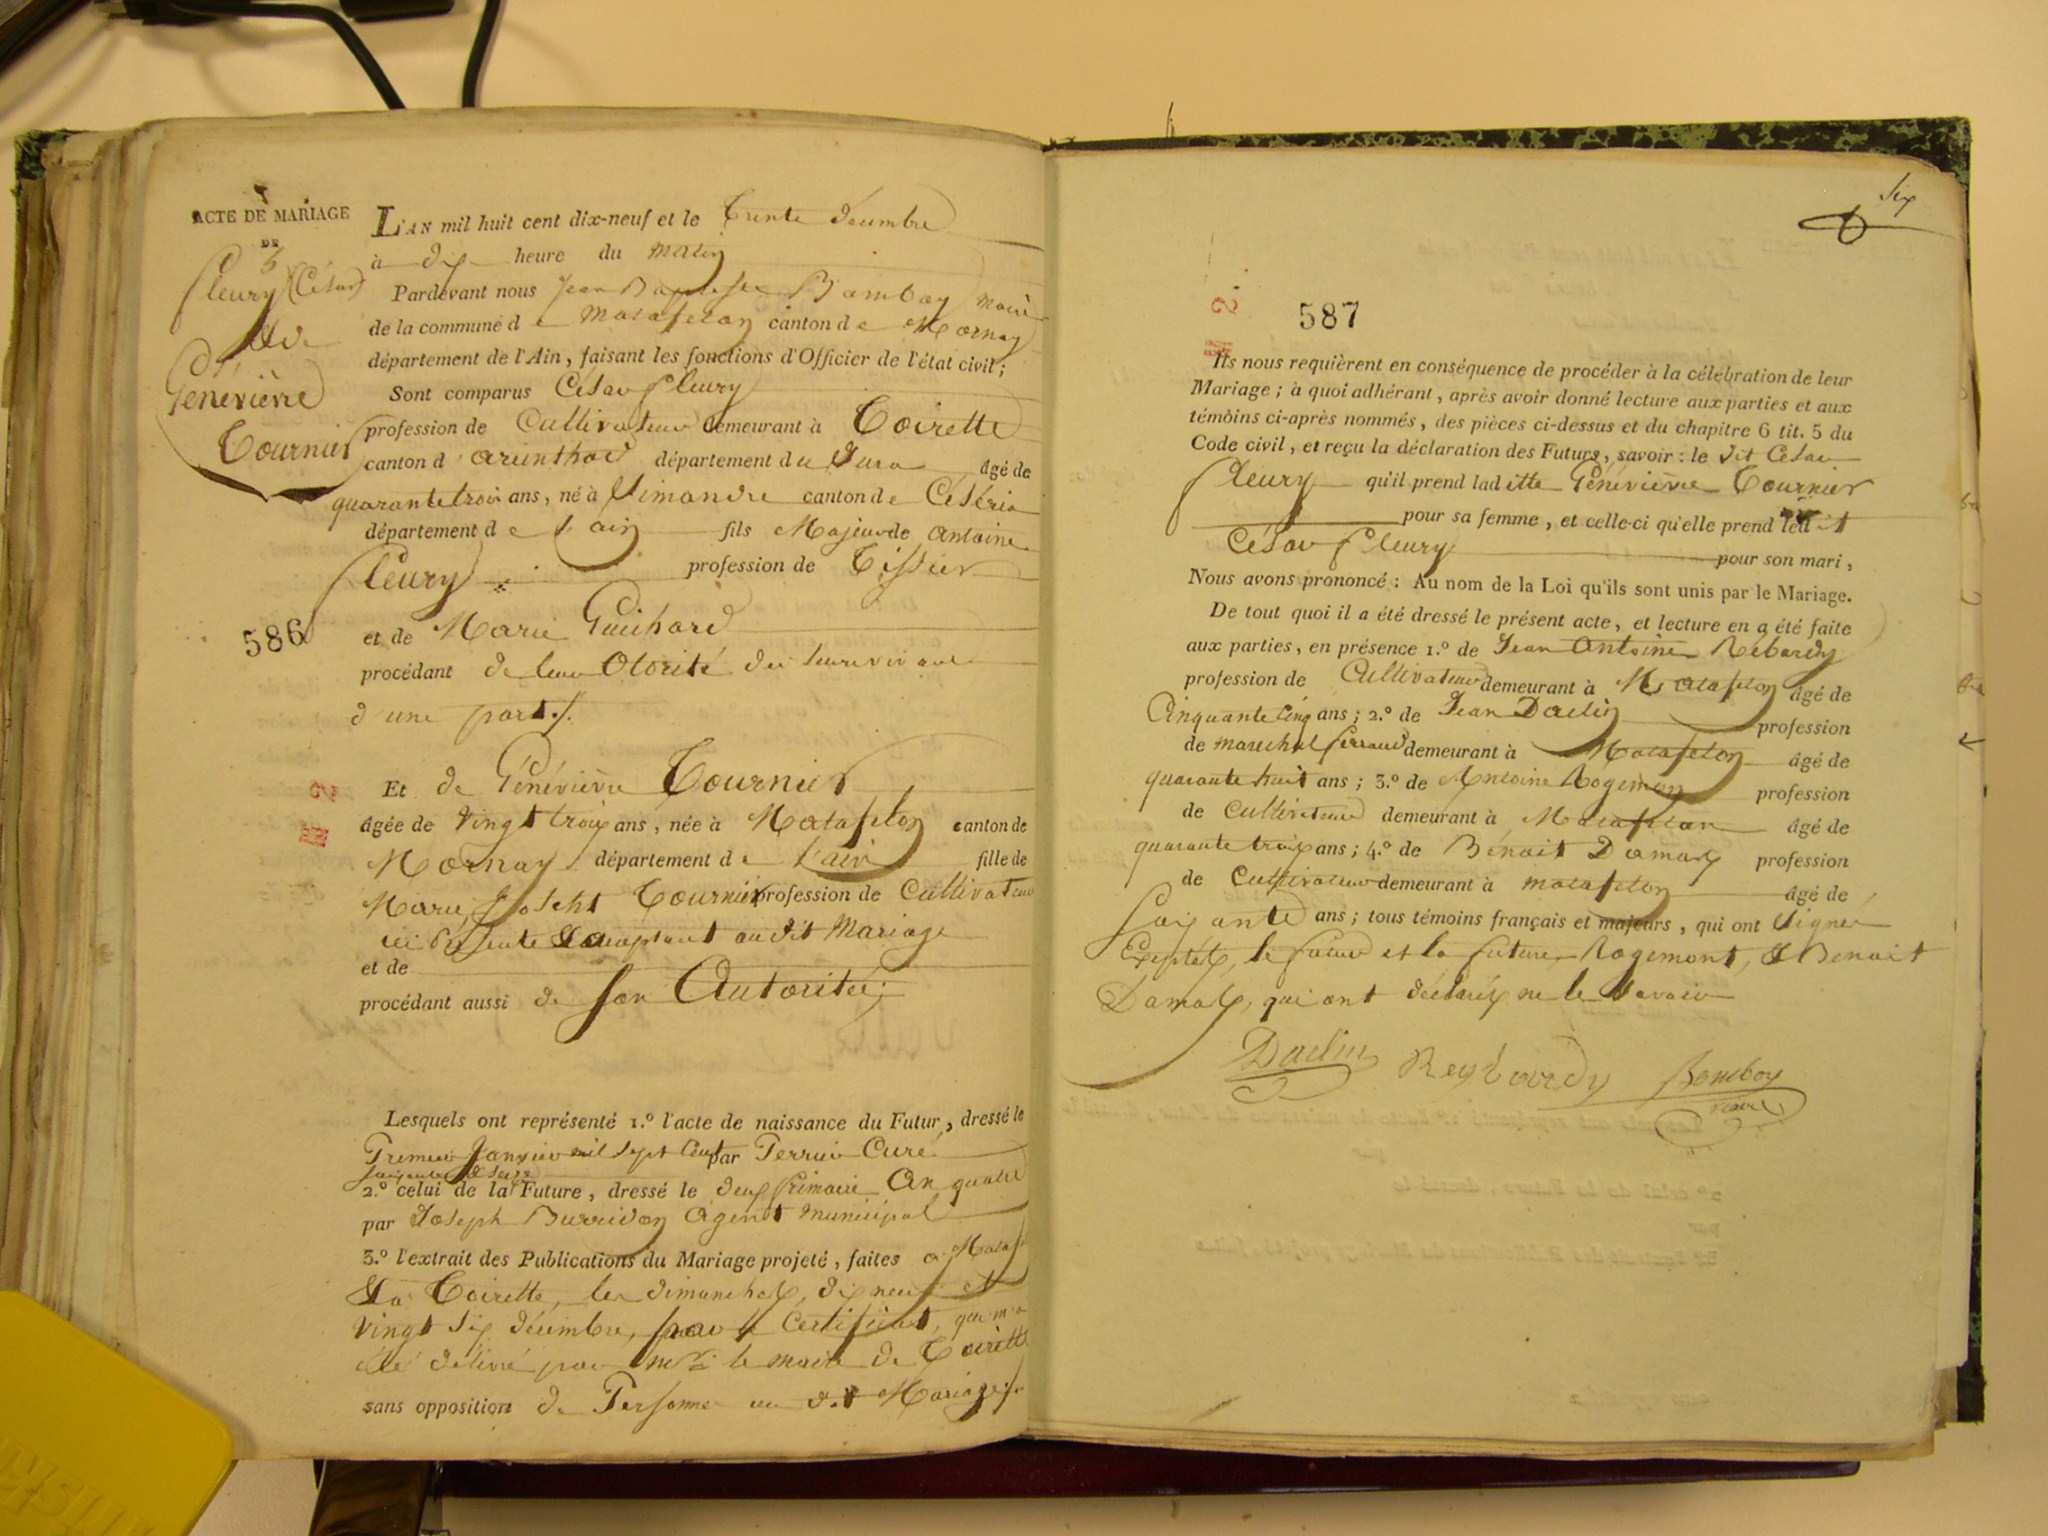 ACTE DE MARIAGE
DE
fleury (César)
et de
Génévière
Tournier
L'AN mil huit cent dix-neuf et le trente décembre
à dix heure du matin
Pardevant nous Jean Baptiste Bamboy maire
de la commune de Matafelon canton de Mornay
département de l'Ain, faisant les fonctions d'Officier de l'état civil;
Sont comparus César fleury
profession de Cultivateur demeurant à Coirette
canton d'arinthod département du Jura âgé de
quarante trois ans, né à Simandre canton de Céséria
département de l'ain fils Majeur de Antoine
fleury profession de Tissier
586
et de Marie Guichard
procédant de leur Otorité
d'une part./.
Et de Génévière Tournier
âgée de vingt troix ans, née à Matafelon canton de
Mornay département de l'ain fille de
Marie Joseht Tournier profession de Cultivateur
ici présente & acceptant au dit Mariage
et de
procédant aussi de son Autorité;
Lesquels ont représenté 1.º l'acte de naissance du Futur, dressé le
Premier Janvier mil sept cent par Perrier Curé
soixante & seize
2.º celui de la Future, dressé le deux frimaire An quatre
par Joseph Burridon Agent municipal
3.º l'extrait des Publications du Mariage projeté, faites à Mataf
& à Coirette, les dimanches, dix neuf et
vingt six décembre, par le Certificat, que m'a
été délivré par mr le maire de Coirette
sans opposition de Personne au dit Mariage./.
six
587
Ils nous requièrent en conséquence de procéder à la célébration de leur
Mariage; à quoi adhérant, après avoir donné lecture aux parties et aux
témoins ci-après nommés, des pièces ci-dessus et du chapitre 6 tit. 5 du
Code civil, et reçu la déclaration des Futurs, savoir: le dit César
fleury qu'il prend laditte Génévière Tournier
pour sa femme, et celle-ci qu'elle prend ledit
César fleury pour son mari,
Nous avons prononcé: Au nom de la Loi qu'ils sont unis par le Mariage.
De tout quoi il a été dressé le présent acte, et lecture en a été faite
aux parties, en présence 1.º de Jean Antoine Rebardy
profession de Cultivateur demeurant à Matafelon âgé de
Cinquante cinq ans; 2.º de Jean Daclin profession
de marechal ferrand demeurant à Matafelon âgé de
quarante huit ans; 3.º de Antoine Rogemon profession
de Cultivateur demeurant à Matafelon âgé de
quarante troix ans; 4.º de Bénoit Damas profession
de Cultivateur demeurant à matafelon âgé de
soixante ans; tous témoins français et majeurs, qui ont signé
Exeptés, le futur et la future, Rogemont, & Benoit
Damas, qui ont déclaréx ne le savoir
Daclin Reybardy Bomboy
maire